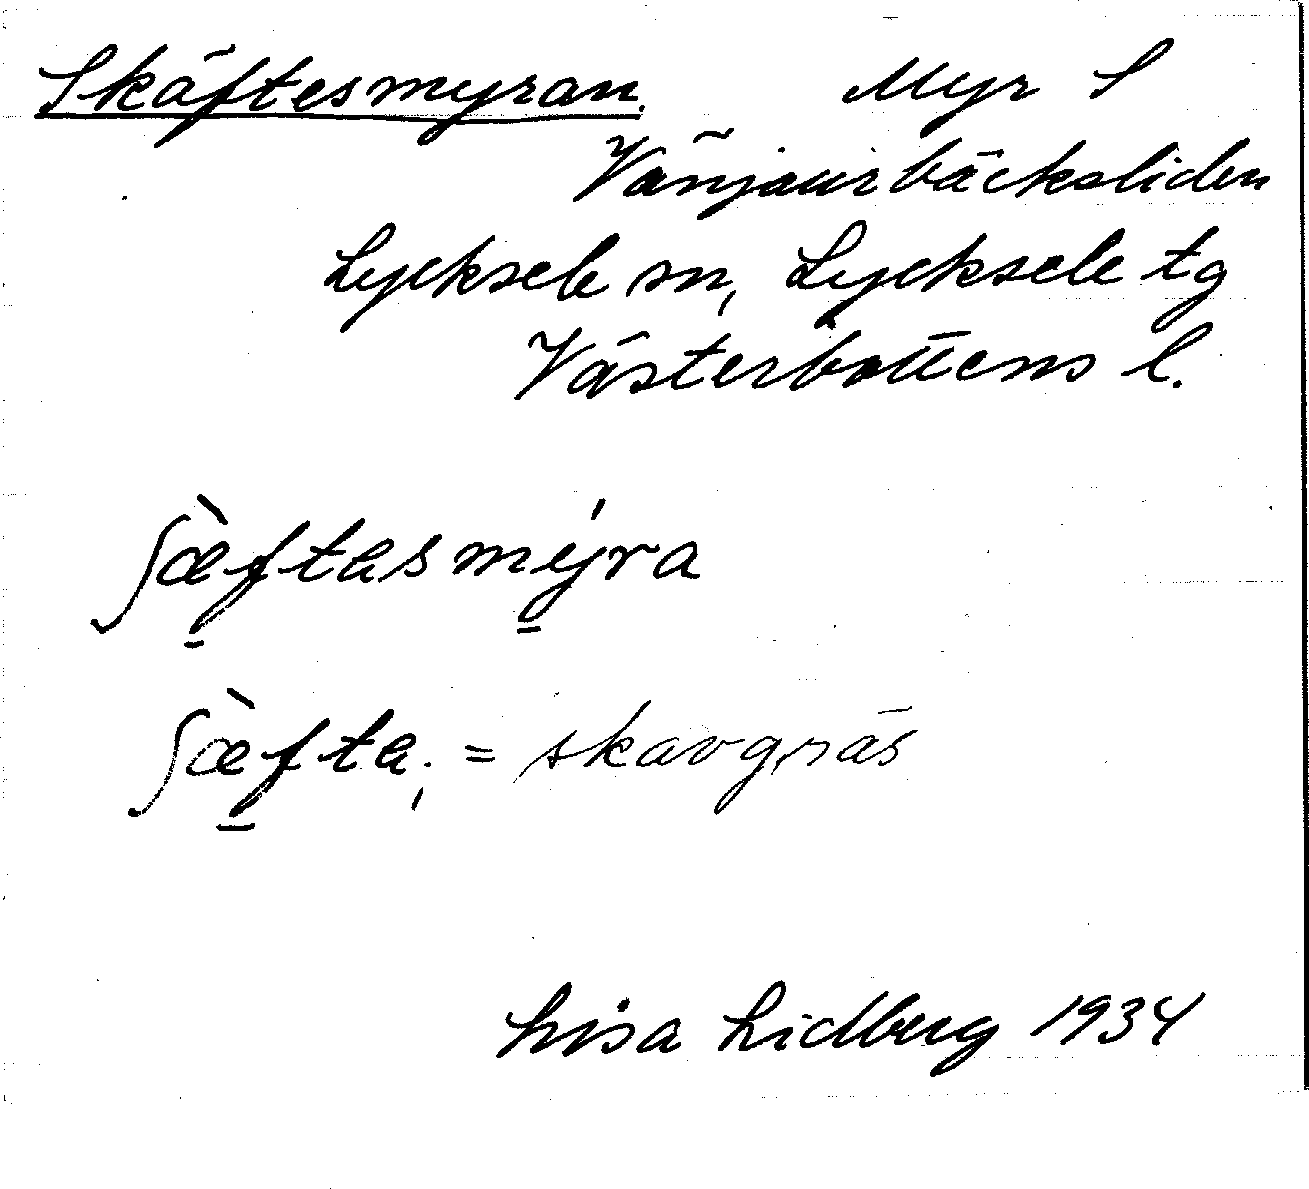 Skäftesmyran. Myr S
Vänjaurbäcksliden
Lycksele sn, Lycksele tg
Västerbottens l.
ʃæ̀ftasmýra
ʃæ̀fta, = skavgräs
Lisa Lidberg 1934